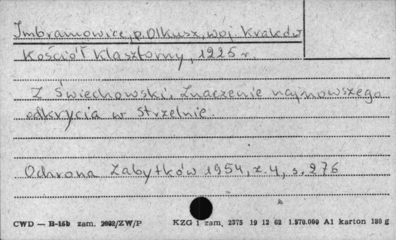 Imbramowice, p. Olkusz, woj. Kraków
Kościół klasztorny, 1225 r.
Z. Świechowski. Znaczenie najnowszego
odkrycia w Strzelnie.
Ochrona Zabytków 1954, z. 4, s. 276
CWD — B-15b zam. 2092/ZW/P KZG 1 zam. 2375 19 12 62 1.570.000 A1 karton 180 g